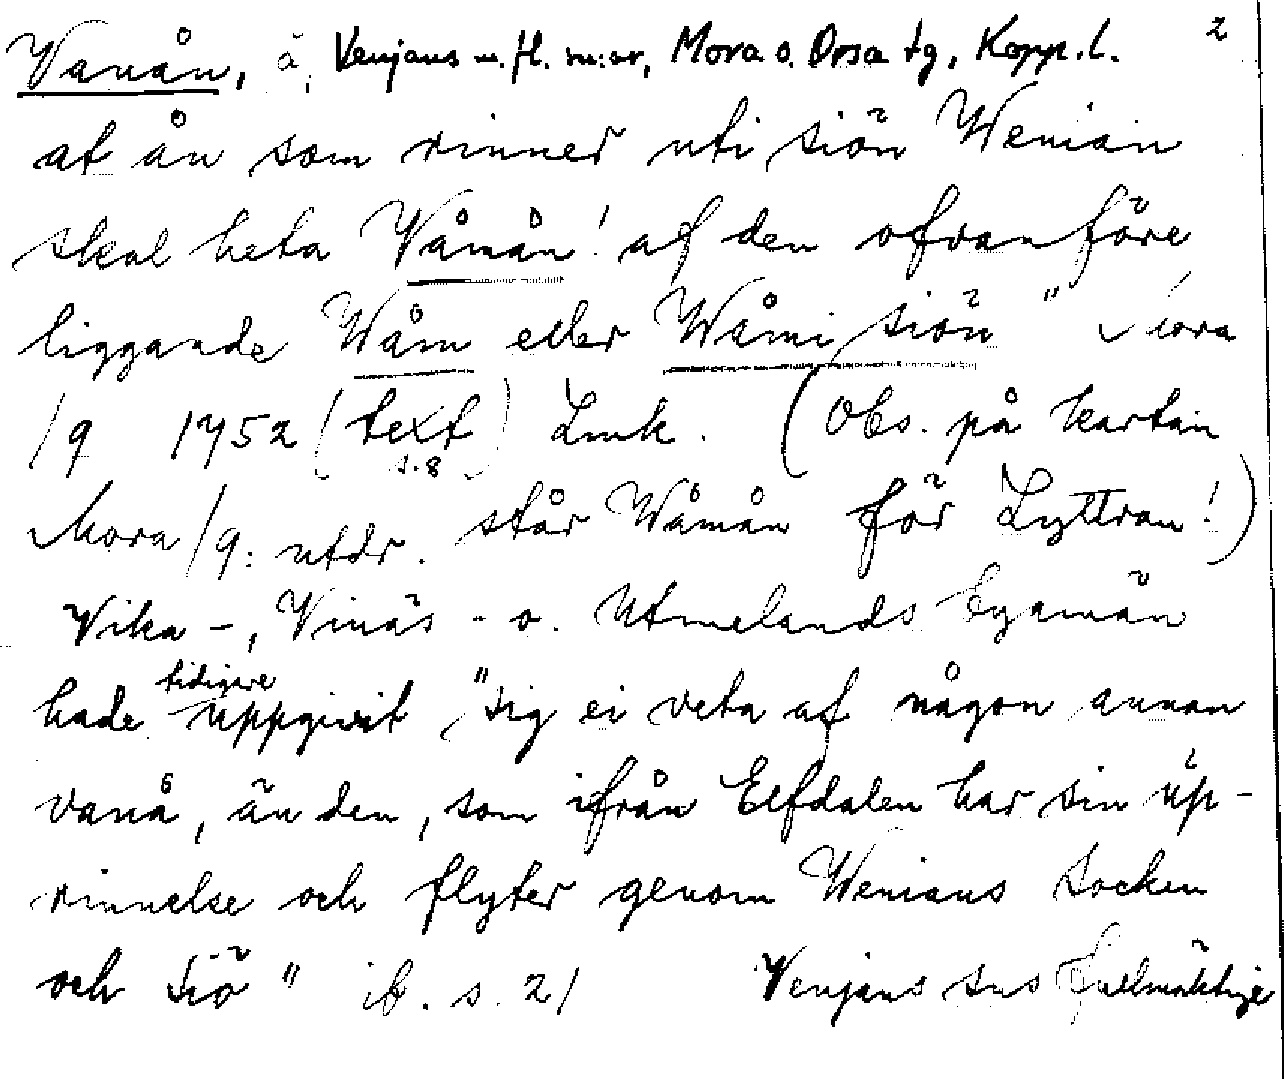 Vanån, å, Venjans m. fl. sn:ar, Mora o. Orsa tg, Kopp. l. 2
at ån som rinner uti siön Wenian
skal heta Våmån! af den ofvanföre
liggande Wåm eller Wåmi siön" Mora
/9 1752 (text s. 8) Lmk. (Obs. på kartan
Mora/9: utdr. står Wåmån för Lyttran!)
Vika-, Vinäs- o. Utmelands byamän
hade tidigare uppgivit "sig ei veta af någon annan
vanå, än den, som ifrån Elfdalen har sin up-
rinnelse och flyter genom Wenians Socken
och Siö" ib. s. 21 Venjans sns fullmäktige